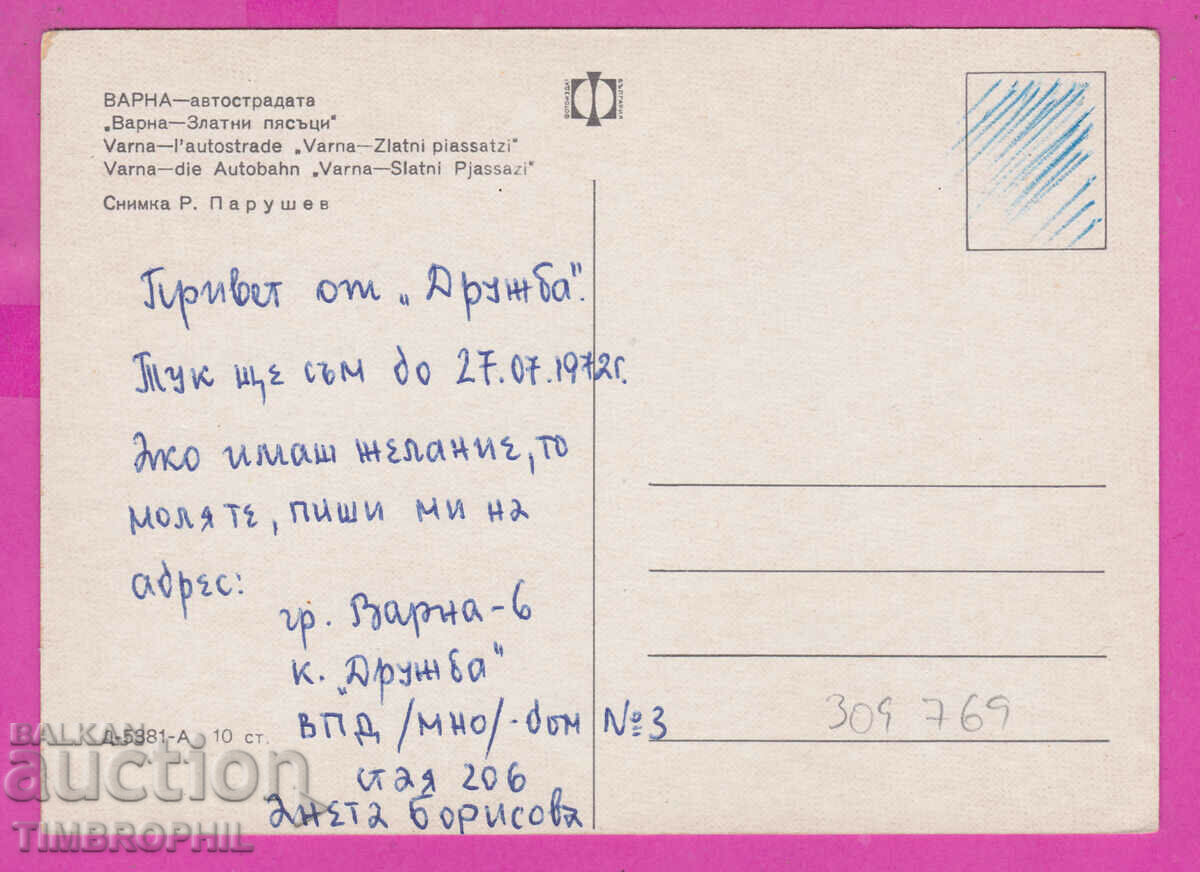 ВАРНА—автострадата
„Варна—Златни пясъци"
Varna—l'autostrade „Varna—Zlatni piassatzi"
Varna—die Autobahn „Varna—Slatni Pjassazi"
Снимка Р. Парушев
ФОТОИЗДАТ
БЪЛГАРИЯ
Привет от „Дружба".
Тук ще съм до 27.07.1972г.
Ако имаш желание, то
моля те, пиши ми на
адрес:
гр. Варна-6
к. „Дружба"
ВПД /МНО/-дом №3
стая 206
Анета Борисова
Д-5381-А 10 ст.
309 769
BALKAN
auction
TIMBROPHIL